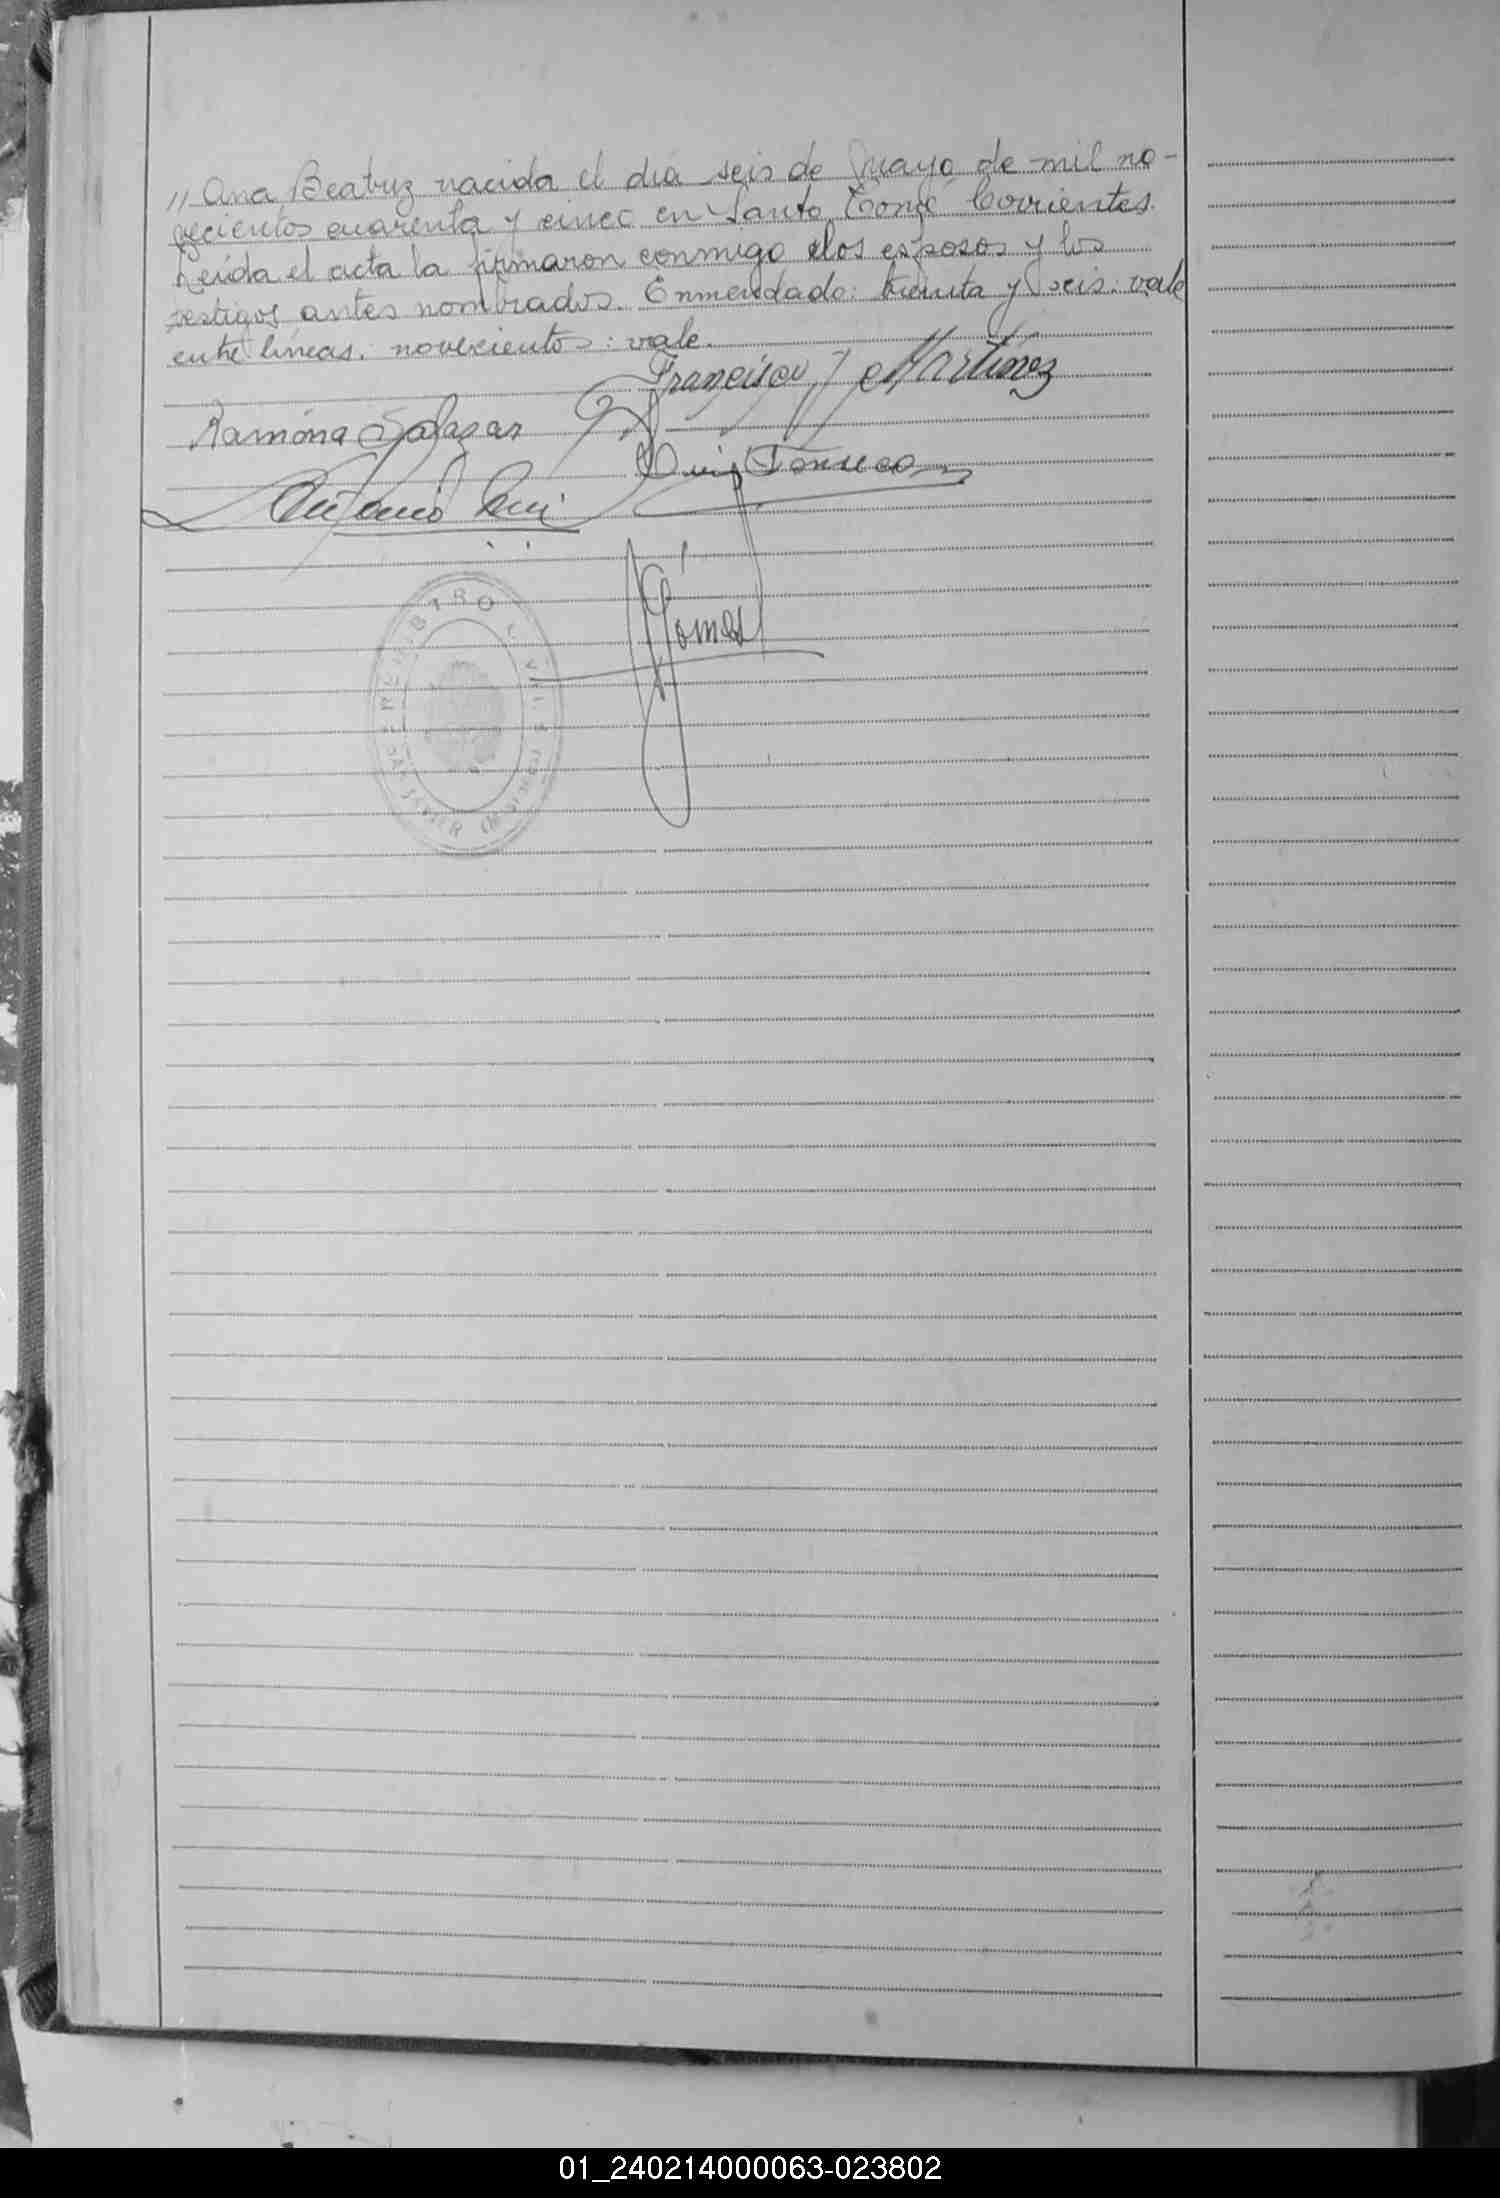 // Ana Beatriz nacida el dia seis de Mayo de mil no-
vecientos cuarenta y cinco en Santo Tomé Corrientes.
Leida el acta la firmaron conmigo los esposos y los
testigos antes nombrados. Enmendado: treinta y seis: vale
entre lineas: novecientos: vale.
Francisco J Martinez
Ramona Salazar
Luis Fonseca
Antonio
Gómez
REGISTRO CIVIL
SAN JAVIER
01_240214000063-023802